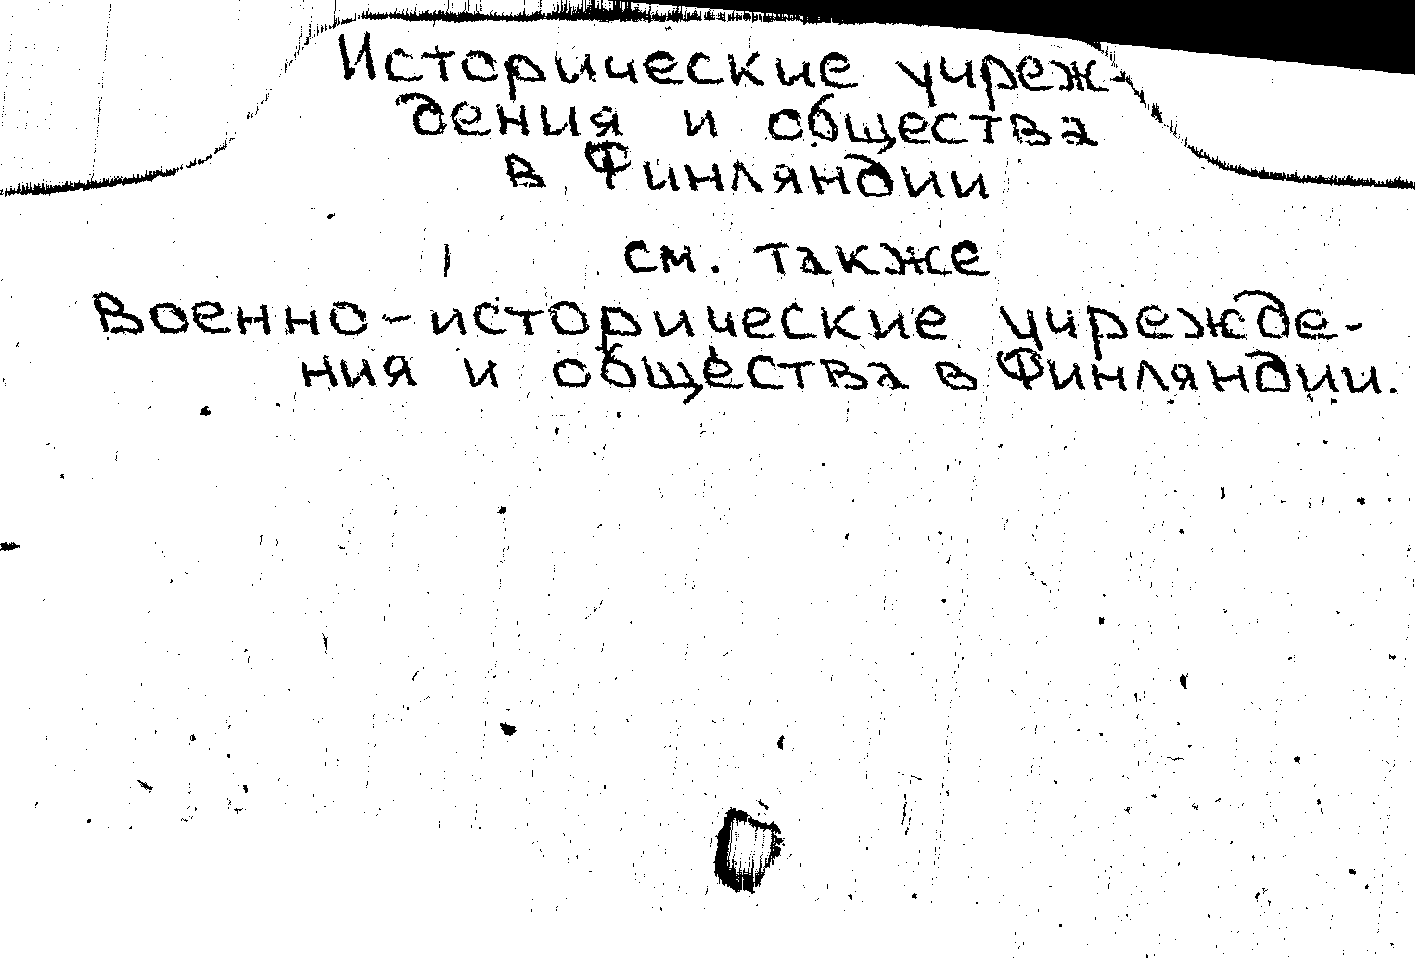 Исторические учреж-
дения и общества
в Финляндии
см. также
Военно-исторические учрежде-
ния и общества в Финляндии.